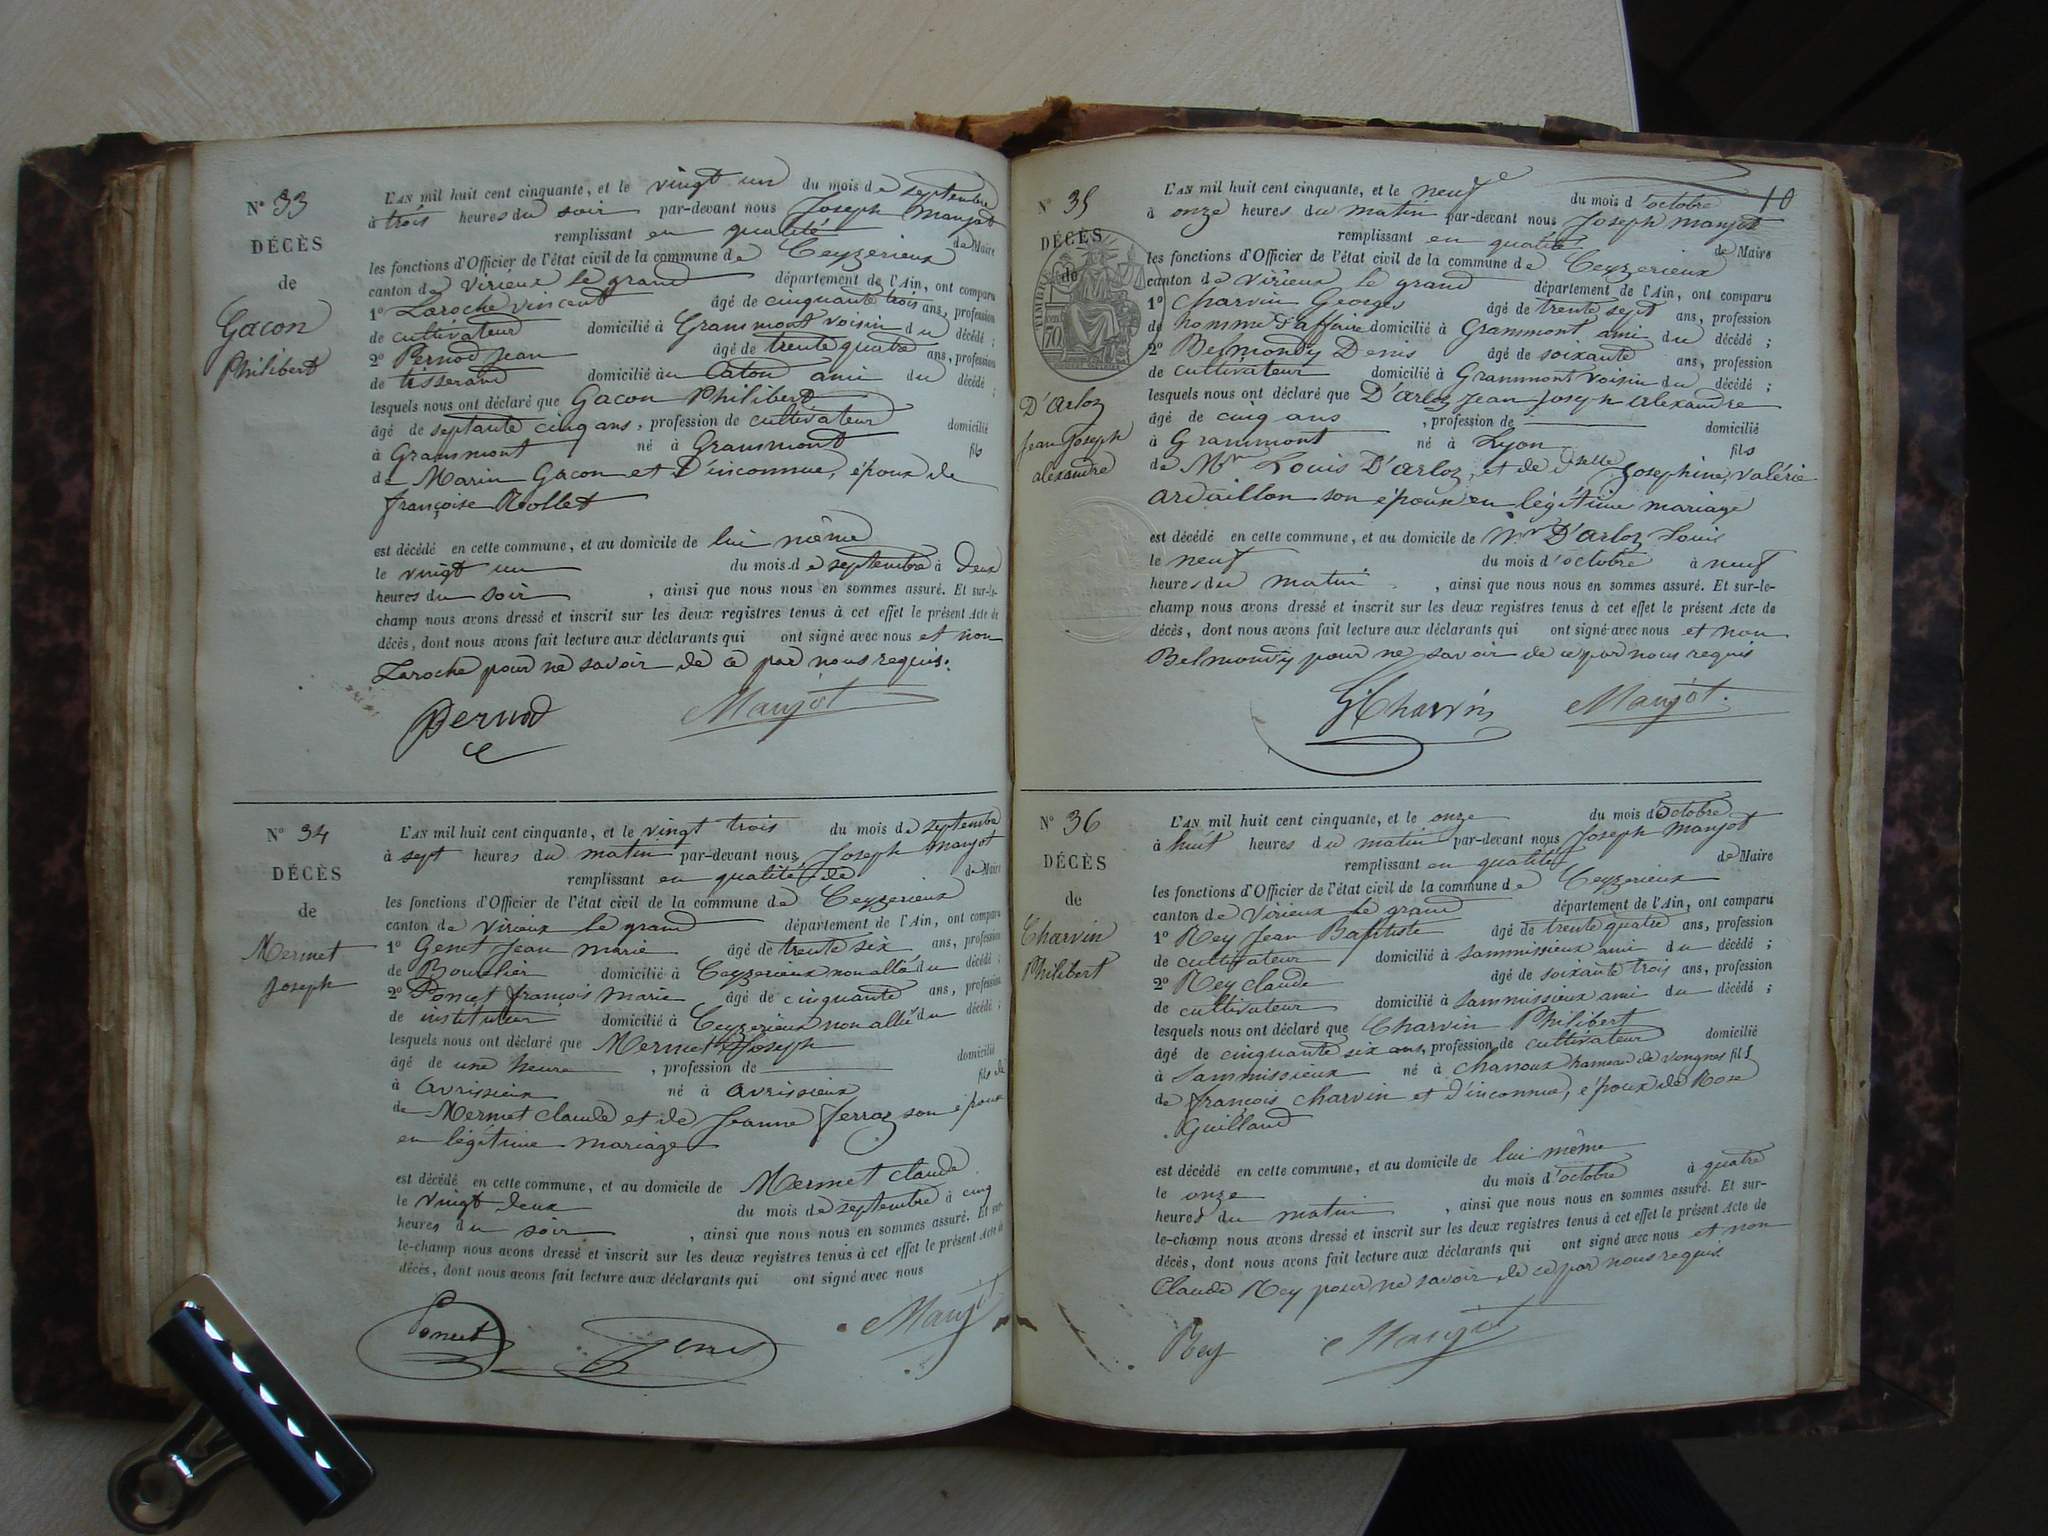 N° 33
DÉCÈS
de
Gacon
Philibert
L'AN mil huit cent cinquante, et le vingt un du mois de septembre
à trois heures du soir par-devant nous Joseph Maujot
remplissant en qualité de Maire
les fonctions d'Officier de l'état civil de la commune de Ceyzerieux
canton de virieux le grand département de l'Ain, ont comparu
1° Laroche vincent âgé de cinquante trois ans, profession
de cultivateur domicilié à Grammont voisin du décédé ;
2° Pernod Jean âgé de trente quatre ans, profession
de tisserand domicilié au Caton ami du décédé ;
lesquels nous ont déclaré que Gacon Philibert
âgé de septante cinq ans, profession de cultivateur domicilié
à Grammont né à Grammont fils
de Marin Gacon et D'inconnue, époux de
françoise Rollet
est décédé en cette commune, et au domicile de lui même
le vingt un du mois de septembre à deux
heures du soir, ainsi que nous nous en sommes assuré. Et sur-le-
champ nous avons dressé et inscrit sur les deux registres tenus à cet effet le présent Acte de
décès, dont nous avons fait lecture aux déclarants qui ont signé avec nous et non
Laroche pour ne savoir de ce par nous requis.
Pernod Maujot
N° 34
DÉCÈS
de
Mermet
Joseph
L'AN mil huit cent cinquante, et le vingt trois du mois de septembre
à sept heures du matin par-devant nous Joseph Maujot
remplissant en qualité de de Maire
les fonctions d'Officier de l'état civil de la commune de Ceyzerieux
canton de virieux le grand département de l'Ain, ont comparu
1° Genet Jean marie âgé de trente six ans, profession
de Bourelier domicilié à Ceyzerieux non allié du décédé ;
2° Poncet françois marie âgé de cinquante ans, profession
de instituteur domicilié à Ceyzerieux non allié du décédé ;
lesquels nous ont déclaré que Mermet Joseph
âgé de une heure, profession de domicilié
à avrissieux né à avrissieux fils de
de Mermet Claude et de Jeanne ferraz son époux
en légitime mariage
est décédé en cette commune, et au domicile de Mermet Claude
le vingt deux du mois de septembre à cinq
heures du soir, ainsi que nous nous en sommes assuré. Et sur-
le-champ nous avons dressé et inscrit sur les deux registres tenus à cet effet le présent Acte de
décès, dont nous avons fait lecture aux déclarants qui ont signé avec nous
Poncet Genet Maujot
10
N° 35
DÉCÈS
de
D'arloz
Jean Joseph
alexandre
L'AN mil huit cent cinquante, et le neuf du mois d'octobre
à onze heures du matin par-devant nous Joseph Maujot
remplissant en qualité de Maire
les fonctions d'Officier de l'état civil de la commune de Ceyzerieux
canton de virieux le grand département de l'Ain, ont comparu
1° Charvin Georges âgé de trente sept ans, profession
de homme d'affaire domicilié à Grammont ami du décédé ;
2° Belmondy Denis âgé de soixante ans, profession
de cultivateur domicilié à Grammont voisin du décédé ;
lesquels nous ont déclaré que D'arloz Jean Joseph alexandre
âgé de cinq ans, profession de domicilié
à Grammont né à Lyon fils
de Mr Louis D'arloz, et de Joséphine, valérie
ardaillon son époux en légitime mariage
est décédé en cette commune, et au domicile de Mr D'arloz Louis
le neuf du mois d'octobre à neuf
heures du matin, ainsi que nous nous en sommes assuré. Et sur-le-
champ nous avons dressé et inscrit sur les deux registres tenus à cet effet le présent Acte de
décès, dont nous avons fait lecture aux déclarants qui ont signé avec nous et non
Belmondy pour ne savoir de ce par nous requis
G Charvin Maujot
N° 36
DÉCÈS
de
Charvin
Philibert
L'AN mil huit cent cinquante, et le onze du mois d'octobre
à huit heures du matin par-devant nous Joseph Maujot
remplissant en qualité de Maire
les fonctions d'Officier de l'état civil de la commune de Ceyzerieux
canton de virieux le grand département de l'Ain, ont comparu
1° Rey Jean Baptiste âgé de trente quatre ans, profession
de cultivateur domicilié à Sammissieux ami du décédé ;
2° Rey Claude âgé de soixante trois ans, profession
de cultivateur domicilié à Sammissieux ami du décédé ;
lesquels nous ont déclaré que Charvin Philibert
âgé de cinquante six ans, profession de cultivateur domicilié
à Sammissieux né à Chanoux hameau de vongnes fils
de françois Charvin et d'inconnue, époux de Rose
Guilland
est décédé en cette commune, et au domicile de lui même
le onze du mois d'octobre à quatre
heures du matin, ainsi que nous nous en sommes assuré. Et sur-
le-champ nous avons dressé et inscrit sur les deux registres tenus à cet effet le présent Acte de
décès, dont nous avons fait lecture aux déclarants qui ont signé avec nous et non
Claude Rey pour ne savoir de ce par nous requis
Rey Maujot